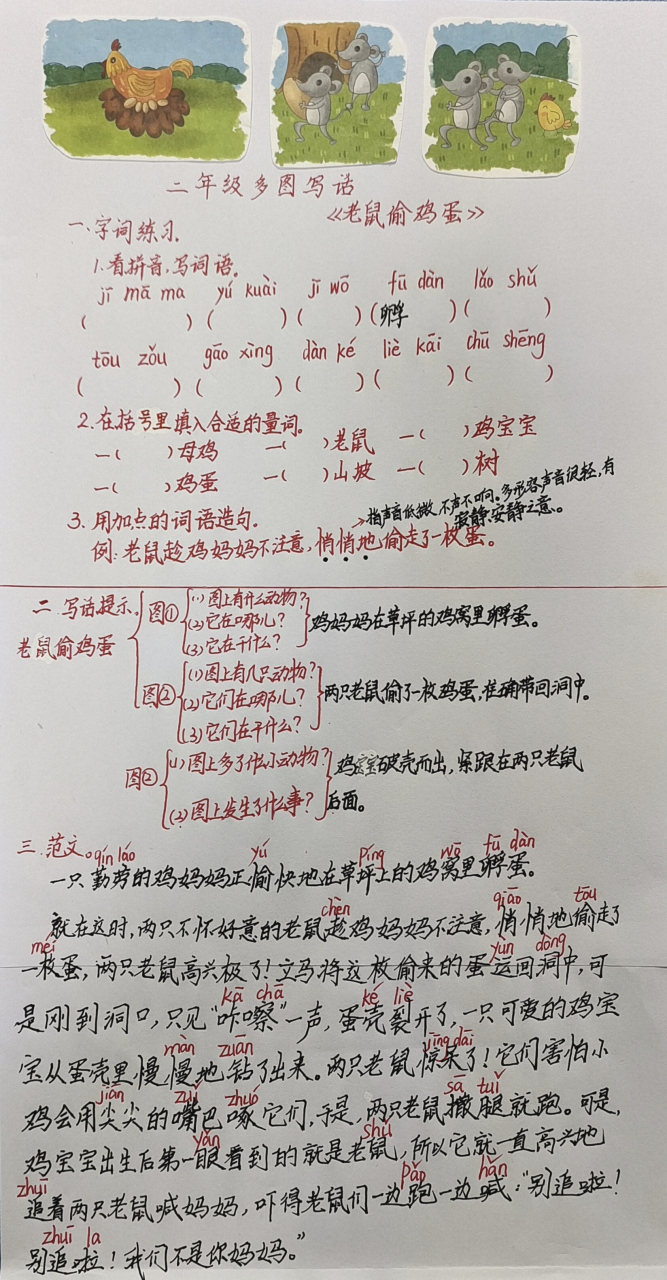 二年级多图写话
《老鼠偷鸡蛋》
一.字词练习.
1.看拼音,写词语。
jī mā ma yú kuài jī wō fū dàn lǎo shǔ
( ) ( ) ( ) (孵 ) ( )
tōu zǒu gāo xìng dàn ké liè kāi chū shēng
( ) ( ) ( ) ( ) ( )
2.在括号里填入合适的量词。
一( )母鸡 一( )老鼠 一( )鸡宝宝
一( )鸡蛋 一( )山坡 一( )树
3.用加点的词语造句。
→指声音低微,不声不响。多形容声音很轻,有
寂静.安静之意。
例:老鼠趁鸡妈妈不注意,悄悄地偷走了一枚蛋。
二.写话提示.
老鼠偷鸡蛋
图①
(1)图上有什么动物?
(2)它在哪儿?
(3)它在干什么?
鸡妈妈在草坪的鸡窝里孵蛋。
图②
(1)图上有几只动物?
(2)它们在哪儿?
(3)它们在干什么?
两只老鼠偷了一枚鸡蛋,准确带回洞中。
图③
(1)图上多了什么小动物?
(2)图上发生了什么事?
鸡宝宝破壳而出,紧跟在两只老鼠
后面。
三.范文。
qín láo yú píng wō fū dàn
一只勤劳的鸡妈妈正愉快地在草坪上的鸡窝里孵蛋。
chèn qiāo tōu
就在这时,两只不怀好意的老鼠趁鸡妈妈不注意,悄悄地偷走了
méi yùn dòng
一枚蛋,两只老鼠高兴极了!立马将这枚偷来的蛋运回洞中,可
kā chā ké liè
是刚到洞口,只见“咔嚓”一声,蛋壳裂开了,一只可爱的鸡宝
màn zuān jīng dāi
宝从蛋壳里慢慢地钻了出来。两只老鼠惊呆了!它们害怕小
jiān zuǐ zhuó sā tuǐ
鸡会用尖尖的嘴巴啄它们,于是,两只老鼠撒腿就跑。可是,
yǎn shǔ
鸡宝宝出生后第一眼看到的就是老鼠,所以它就一直高兴地
zhuī pǎo hǎn
追着两只老鼠喊妈妈,吓得老鼠们一边跑一边喊:“别追啦!
zhuī la
别追啦!我们不是你妈妈。”